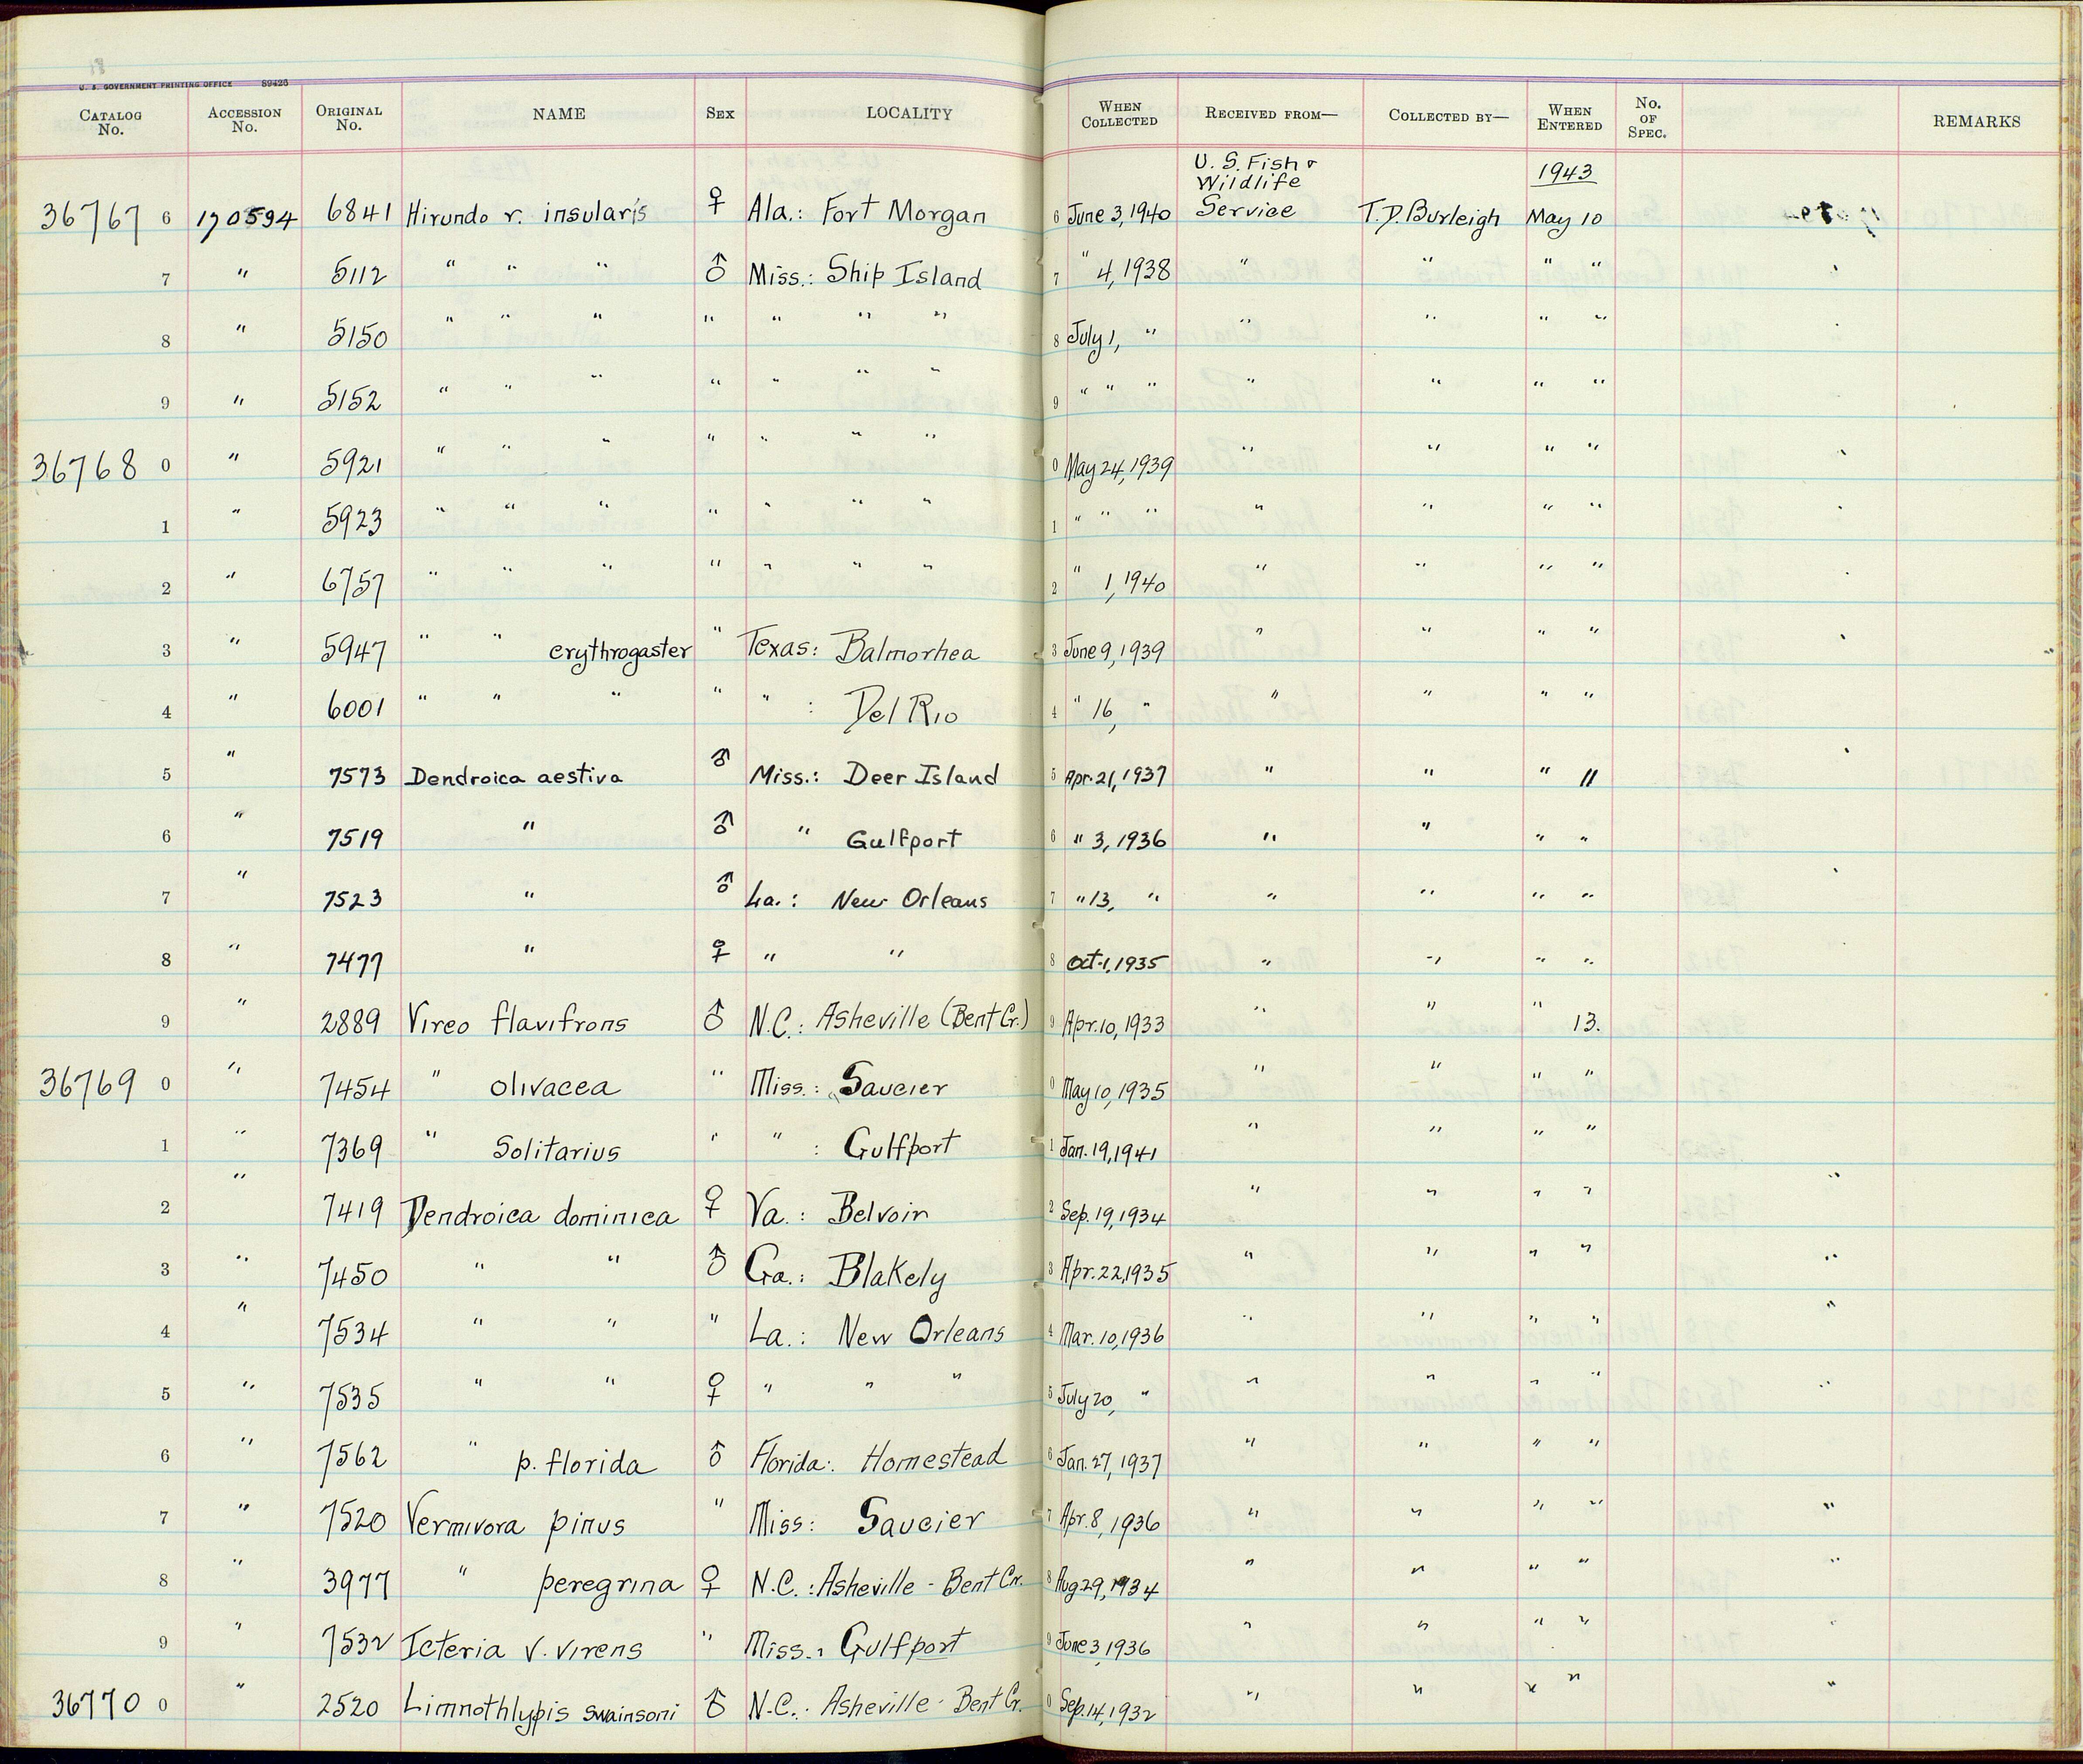 U. S. GOVERNMENT PRINTING OFFICE 89426
CATALOG No. ACCESSION No. ORIGINAL No. NAME SEX LOCALITY WHEN COLLECTED RECEIVED FROM— COLLECTED BY— WHEN ENTERED No. OF SPEC. REMARKS
U. S. Fish & Wildlife Service 1943
36767 6 170594 6841 Hirundo r. insularis ♀ Ala.: Fort Morgan 6 June 3, 1940 T.D. Burleigh May 10
7 " 5112 " " " ♂ Miss.: Ship Island 7 " 4, 1938 " " " "
8 " 5150 " " " " " " " 8 July 1, " " " " "
9 " 5152 " " " " " " " 9 " " " " " " "
36768 0 " 5921 " " " " " " " 0 May 24, 1939 " " " "
1 " 5923 " " " " " " " 1 " " " " " " "
2 " 6757 " " " " " " " 2 " 1, 1940 " " " "
3 " 5947 " " erythrogaster " Texas: Balmorhea 3 June 9, 1939 " " " "
4 " 6001 " " " " " : Del Rio 4 " 16, " " " " "
5 " 7573 Dendroica aestiva ♂ Miss.: Deer Island 5 Apr. 21, 1937 " " " "
6 " 7519 " ♂ " Gulfport 6 " 3, 1936 " " " "
7 " 7523 " ♂ La.: New Orleans 7 " 13, " " " " "
8 " 7477 " ♀ " " 8 Oct. 1, 1935 " " " "
9 " 2889 Vireo flavifrons ♂ N.C.: Asheville (Bent Cr.) 9 Apr. 10, 1933 " " " 13.
36769 0 " 7454 " olivacea " Miss.: Saucier 0 May 10, 1935 " " " "
1 " 7369 " Solitarius " " : Gulfport 1 Jan. 19, 1941 " " " "
2 " 7419 Dendroica dominica ♀ Va.: Belvoir 2 Sep. 19, 1934 " " " " "
3 " 7450 " " ♂ Ga.: Blakely 3 Apr. 22, 1935 " " " " "
4 " 7534 " " " La.: New Orleans 4 Mar. 10, 1936 " " " " "
5 " 7535 " " ♀ " " " 5 July 20, " " " " " "
6 " 7562 " p. florida ♂ Florida: Homestead 6 Jan. 27, 1937 " " " "
7 " 7520 Vermivora pinus " Miss: Saucier 7 Apr. 8, 1936 " " " " "
8 " 3977 " peregrina ♀ N.C.: Asheville - Bent Cr. 8 Aug 29, 1934 " " " " "
9 " 7532 Icteria v. virens " Miss.: Gulfport 9 June 3, 1936 " " " "
36770 0 " 2520 Limnothlypis swainsoni ♂ N.C.: Asheville - Bent Cr. 0 Sep. 14, 1932 " " " " "